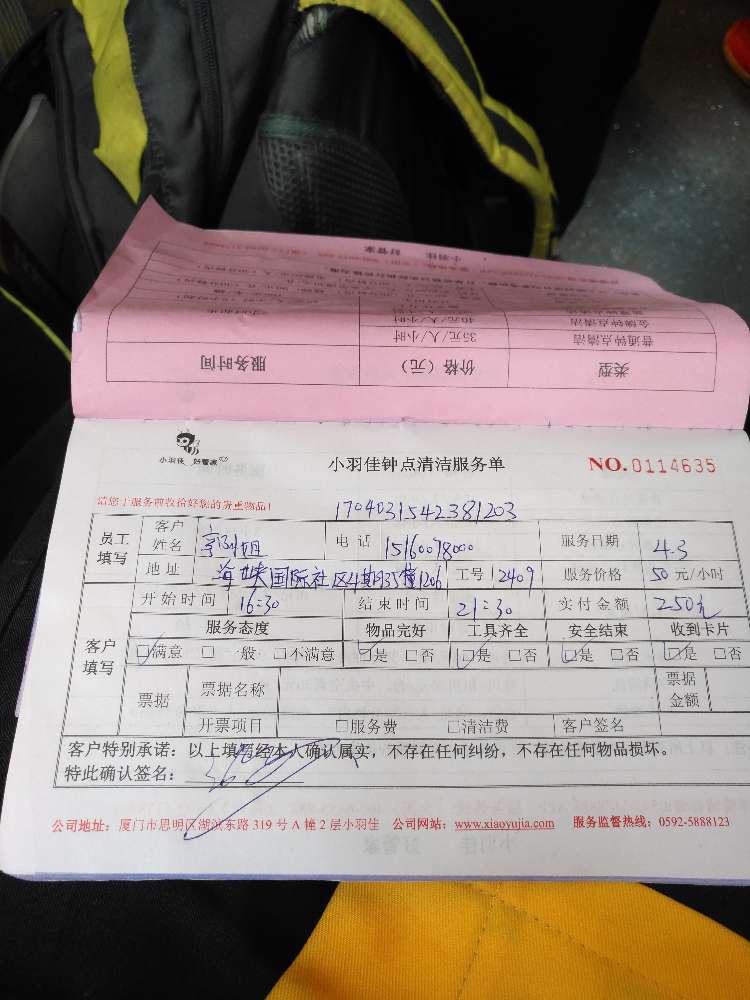 小羽佳 好管家
类型 价格（元） 服务时间
普通钟点清洁 35元/人/小时
金牌钟点清洁 40元/人/小时
小羽佳 好管家
小羽佳钟点清洁服务单
NO.0114635
请您于服务前收拾好您的贵重物品！
1704031542381203
员工填写 客户姓名 电话 15160098000 服务日期 4.3
地址 海峡国际社区4期35幢1206 工号 2409 服务价格 50元/小时
开始时间 16:30 结束时间 21:30 实付金额 250元
客户填写 服务态度 物品完好 工具齐全 安全结束 收到卡片
满意 一般 不满意 是 否 是 否 是 否 是 否
票据 票据名称 票据金额
开票项目 服务费 清洁费 客户签名
客户特别承诺：以上填写经本人确认属实，不存在任何纠纷，不存在任何物品损坏。
特此确认签名：
公司地址：厦门市思明区湖滨东路 319 号 A 幢 2 层小羽佳 公司网站：www.xiaoyujia.com 服务监督热线：0592-5888123